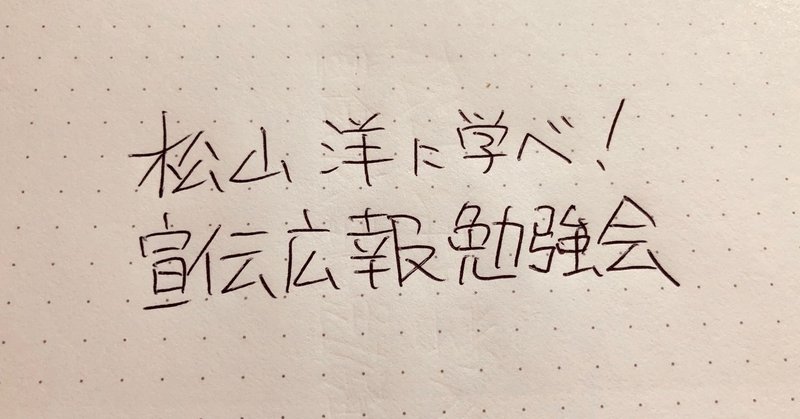 松山 洋に学べ!
宣伝広報勉強会